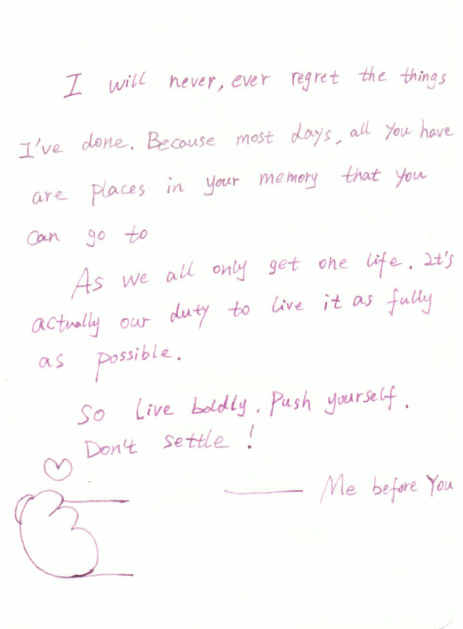 I will never, ever regret the things
I've done. Because most days, all you have
are places in your memory that you
can go to
As we all only get one life. It's
actually our duty to live it as fully
as possible.
So Live boldly. Push yourself.
Don't settle!
—— Me before You